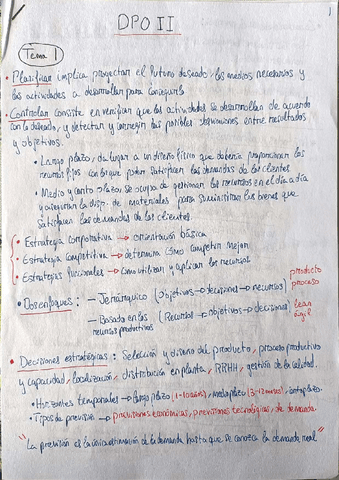 1
DPO II
Tema 1
• Planificar implica proyectar el futuro deseado, los medios necesarios y
las actividades a desarrollar para conseguirlo
• Controlar consiste en verificar que las actividades se desarrollan de acuerdo
con lo deseado, y detectar y corregir las posibles desviaciones entre resultados
y objetivos.
• Largo plazo, da lugar a un diseño físico que debería proporcionar los
recursos fijos con los que poder satisfacer las demandas de los clientes
• Medio y corto plazo, se ocupa de gestionar los recursos en el día a día
y asegurar la disp. de materiales para suministrar los bienes que
satisfacen las demandas de los clientes.
• Estrategia corporativa → orientación básica
• Estrategia competitiva → determina cómo competir mejor
• Estrategias funcionales → cómo utilizar y aplicar los recursos
• Dos enfoques: – Jerárquico (Objetivos → decisiones → recursos) producto proceso
– Basado en los recursos productivos (Recursos → objetivos → decisiones) lean ágil
• Decisiones estratégicas: Selección y diseño del producto, proceso productivo
y capacidad, localización, distribución en planta, RRHH, gestión de la calidad.
• Horizontes temporales → largo plazo (1-10 años), medio plazo (3-12 meses), corto plazo.
• Tipos de previsión → previsiones económicas, previsiones tecnológicas, de demanda.
"La previsión es la única estimación de la demanda hasta que se conozca la demanda real"